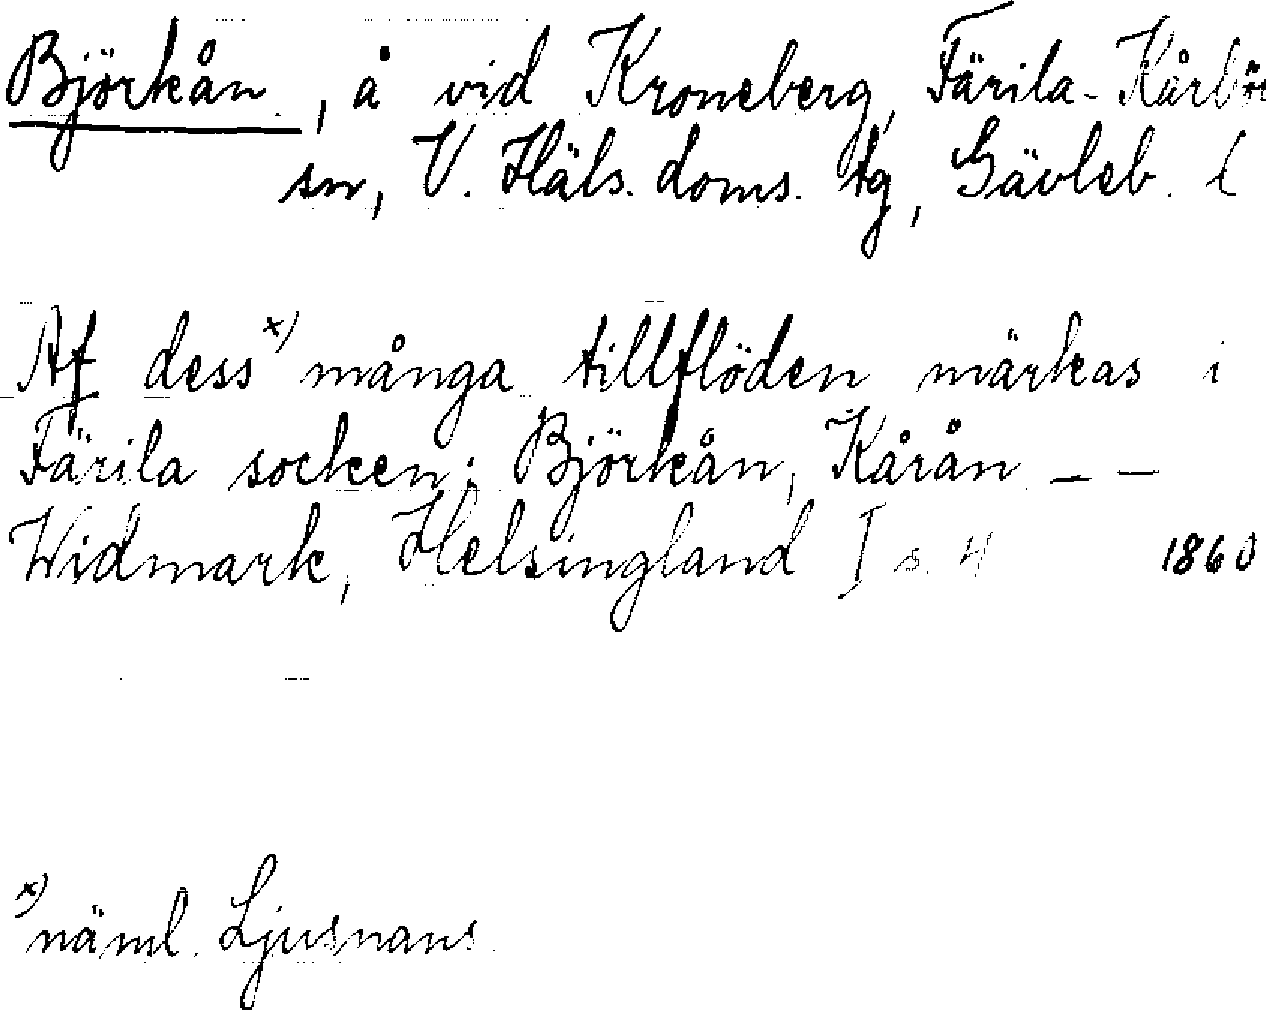 Björkån, å vid Kroneberg, Färila-Kårbö
sn, V. Häls. doms. tg, Gävleb. l
Af dess x) många tillflöden märkas i
Färila socken: Björkån, Kårån _ _
Widmark, Helsingland I s. 4 1860
x) näml. Ljusnans